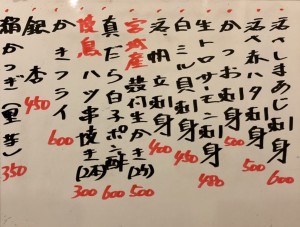 活〆しまあじ刺身 600
活〆赤ハタ刺身 500
かつお刺身 500
生トロサーモン刺身 480
白ミル貝刺身 450
活帆立刺身 400
宮城産 殻付生かき(2ケ) 500
真だら白子ポン酢 600
焼鳥 ハツ串焼き(2本) 300
かきフライ 600
銀杏 450
絹かつぎ(里芋) 350